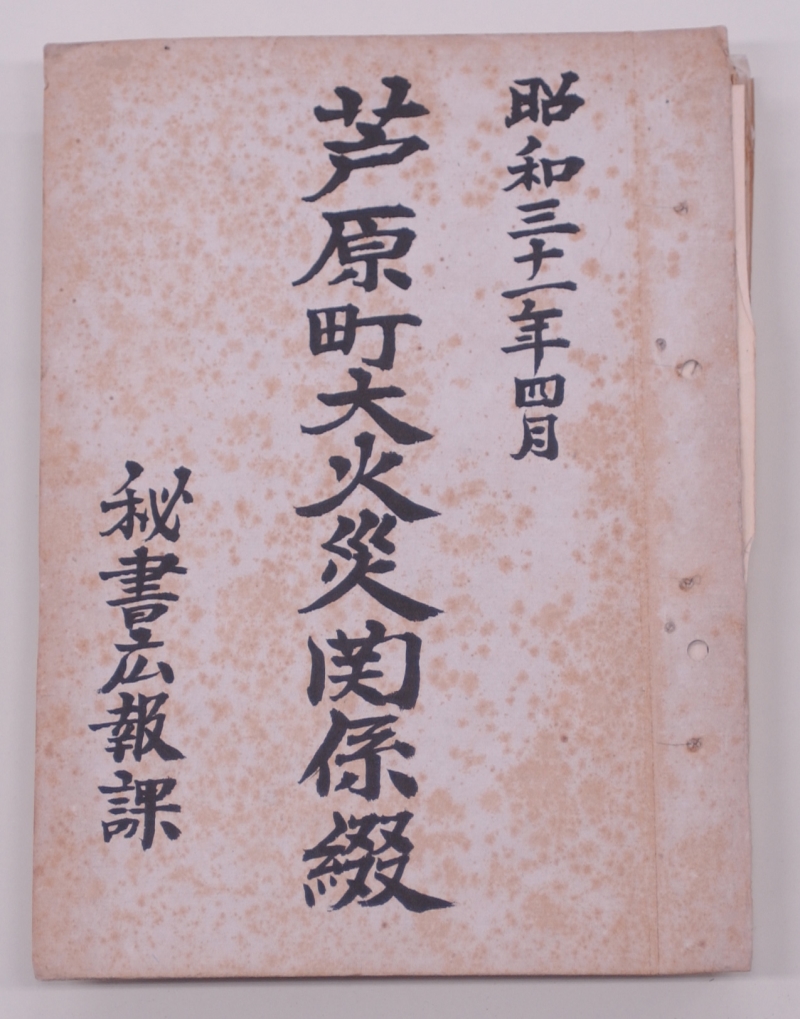 昭和三十一年四月
芦原町大火災関係綴
秘書広報課